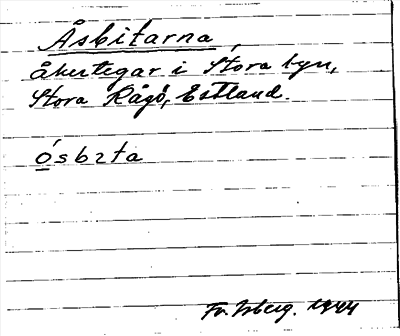 Åsbitarna,
åkertegar i Stora byn,
Stora Rågö, Estland.
ósbɩta
Fr. Isberg. 1944